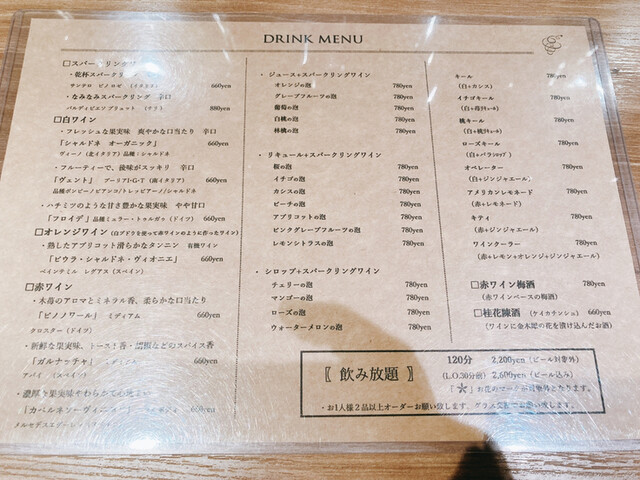 DRINK MENU
□スパークリングワイン
・乾杯スパークリング
サンテロ ピノロゼ (イタリア) 660yen
・なみなみスパークリング 辛口
バルディビエソ ブリュット (チリ) 880yen
□白ワイン
・フレッシュな果実味 爽やかな口当たり 辛口
「シャルドネ オーガニック」 660yen
ヴィーノ (北イタリア) 品種:シャルドネ
・フルーティーで、後味がスッキリ 辛口
「ヴェント」 プーリアI・G・T (南イタリア) 660yen
品種ボンビーノビアンコ/トレッビアーノ/シャルドネ
・ハチミツのような甘さ豊かな果実味 やや甘口
「フロイデ」品種ミュラー・トゥルガゥ (ドイツ) 660yen
□オレンジワイン (白ブドウを使って赤ワインのように作ったワイン)
・熟したアプリコット滑らかなタンニン 有機ワイン
「ビウラ・シャルドネ・ヴィオニエ」 660yen
ベインテミル レグアス (スペイン)
□赤ワイン
・木苺のアロマとミネラル香、柔らかな口当たり
「ピノノワール」 ミディアム 660yen
クロスター (ドイツ)
・新鮮な果実味、トースト香・胡椒などのスパイス香
「ガルナッチャ」 660yen
アバイ (スペイン)
・濃厚な果実味やわらかで
「カベルネソーヴィニ 660yen
メルセデス
・ ジュース+スパークリングワイン
オレンジの泡 780yen
グレープフルーツの泡 780yen
葡萄の泡 780yen
白桃の泡 780yen
林檎の泡 780yen
・ リキュール+スパークリングワイン
桜の泡 780yen
イチゴの泡 780yen
カシスの泡 780yen
ピーチの泡 780yen
アプリコットの泡 780yen
ピンクグレープフルーツの泡 780yen
レモンシトラスの泡 780yen
・ シロップ+スパークリングワイン
チェリーの泡 780yen
マンゴーの泡 780yen
ローズの泡 780yen
ウォーターメロンの泡 780yen
キール 780yen
(白+カシス)
イチゴキール 780yen
(白+苺リキュール)
桃キール 780yen
(白+桃リキュール)
ローズキール 780yen
(白+バラシロップ)
オペレーター 780yen
(白+ジンジャエール)
アメリカンレモネード 780yen
(赤+レモネード)
キティ 780yen
(赤+ジンジャエール)
ワインクーラー 780yen
(赤+レモン+オレンジ+ジンジャエール)
□赤ワイン梅酒 780yen
(赤ワインベースの梅酒)
□桂花陳酒 (ケイカチンシュ) 660yen
(ワインに金木犀の花を漬け込んだお酒)
〖 飲み放題 〗
120分 2,200yen (ビール対象外)
(L.O.30分前) 2,600yen (ビール込み)
「 」お花のマークが対象外となります。
・お1人様2品以上オーダーお願い致します。グラス交換でお願い致します。